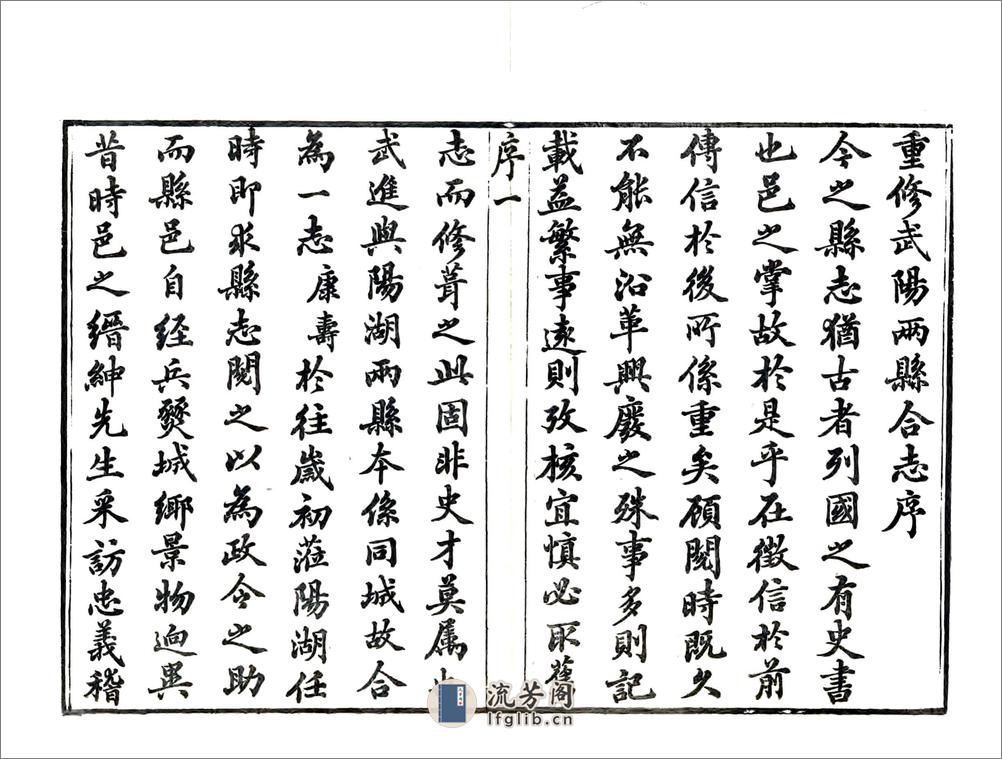 重修武陽兩縣合志序
今之縣志猶古者列國之有史書
也邑之掌故於是乎在徵信於前
傳信於後所係重矣顧閱時既久
不能無沿革興廢之殊事多則記
載益繁事遠則攷核宜慎必取舊
序一
志而修葺之此固非史才莫屬也
武進與陽湖兩縣本係同城故合
為一志康壽於往歲初蒞陽湖任
時即求縣志閱之以為政令之助
而縣邑自經兵燹城鄉景物迥異
昔時邑之縉紳先生采訪忠義稽
流芳阁
lfglib.cn